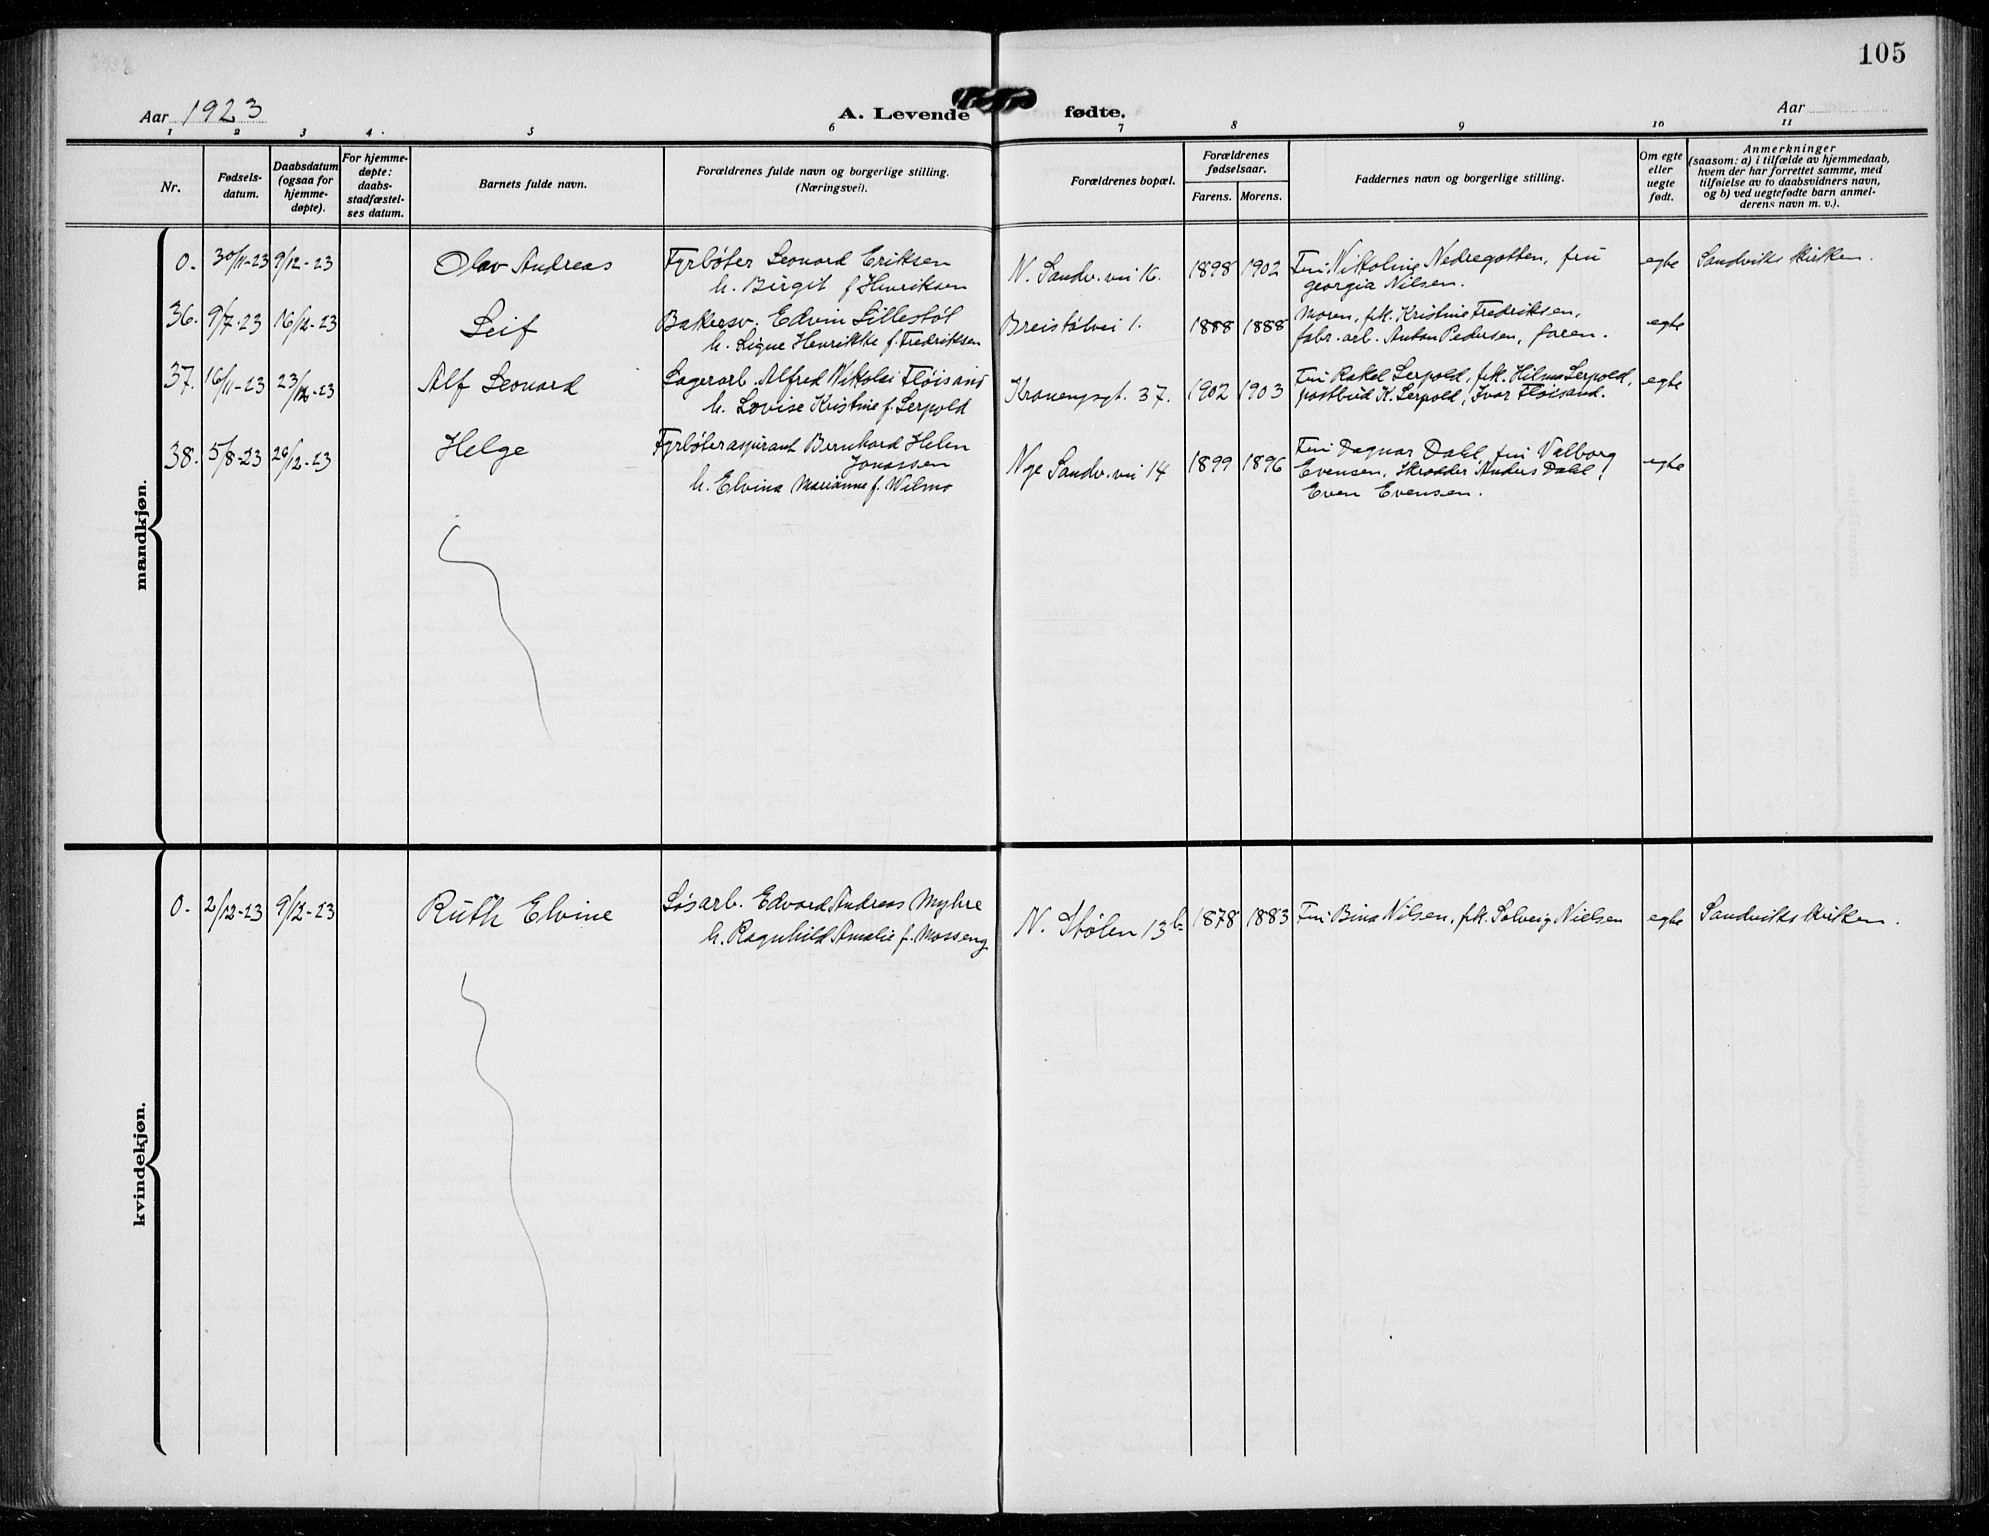 105
Aar 1923
A. Levende fødte.
Aar
1 2 3 4. 5 6 7 8 9 10 11
Nr.
Fødsels-
datum.
Daabsdatum
(ogsaa for
hjemme-
døpte).
For hjemme-
døpte:
daabs-
stadfæstel-
ses datum.
Barnets fulde navn.
Forældrenes fulde navn og borgerlige stilling.
(Næringsvei).
Forældrenes bopæl.
Forældrenes
fødselsaar.
Farens. Morens.
Faddernes navn og borgerlige stilling.
Om egte
eller
uegte
født.
Anmerkninger
(saasom: a) i tilfælde av hjemmedaab,
hvem der har forrettet samme, med
tilføielse av to daabsvidners navn,
og b) ved uegtefødte barn anmel-
derens navn m. v.).
mandkjøn.
0. 30/11-23 9/12-23 Olav Andreas Fyrbøter Leonard Eriksen N. Sandv. vei 16. 1898 1902 Fru Nikoline Nedregotten, fru egte Sandvikskirken.
h. Birgit f Henriksen georgia Nilsen.
36. 9/7-23 16/12-23 Leif Bakersv. Edvin Lillestøl Breistølvei 1. 1888 1888 Moren, frk. Kristine Fredriksen, egte
h. Signe Henrikke f. Fredriksen fabr. arb. Anton Pedersen, faren.
37. 16/11-23 23/12-23 Alf Leonard Lagerarb. Alfred Nikolai Fløisand Kronengsgt. 37. 1902 1903 Fru Rakel Serpold, frk. Hilma Serpold, egte
h. Lovise Kristine f. Serpold postbud K. Serpold, Ivar Fløisand.
38. 5/8-23 26/12-23 Helge Fyrbøteraspirant Bernhard Helen Nye Sandv. vei 14 1899 1896 Fru Dagnar Dahl, fru Valborg egte
Jonassen Evensen, skrædder Anders Dahl,
h. Elvina Marianne f. Wilmo Even Evensen.
kvindekjøn.
0. 2/12-23 9/12-23 Ruth Elvine Løsarb. Edvard Andreas Myhre N. Stølen 13b 1878 1883 Fru Bina Nilsen, frk. Solveig Nielsen egte Sandvikskirken.
h. Ragnhild Amalie f. Mosseng